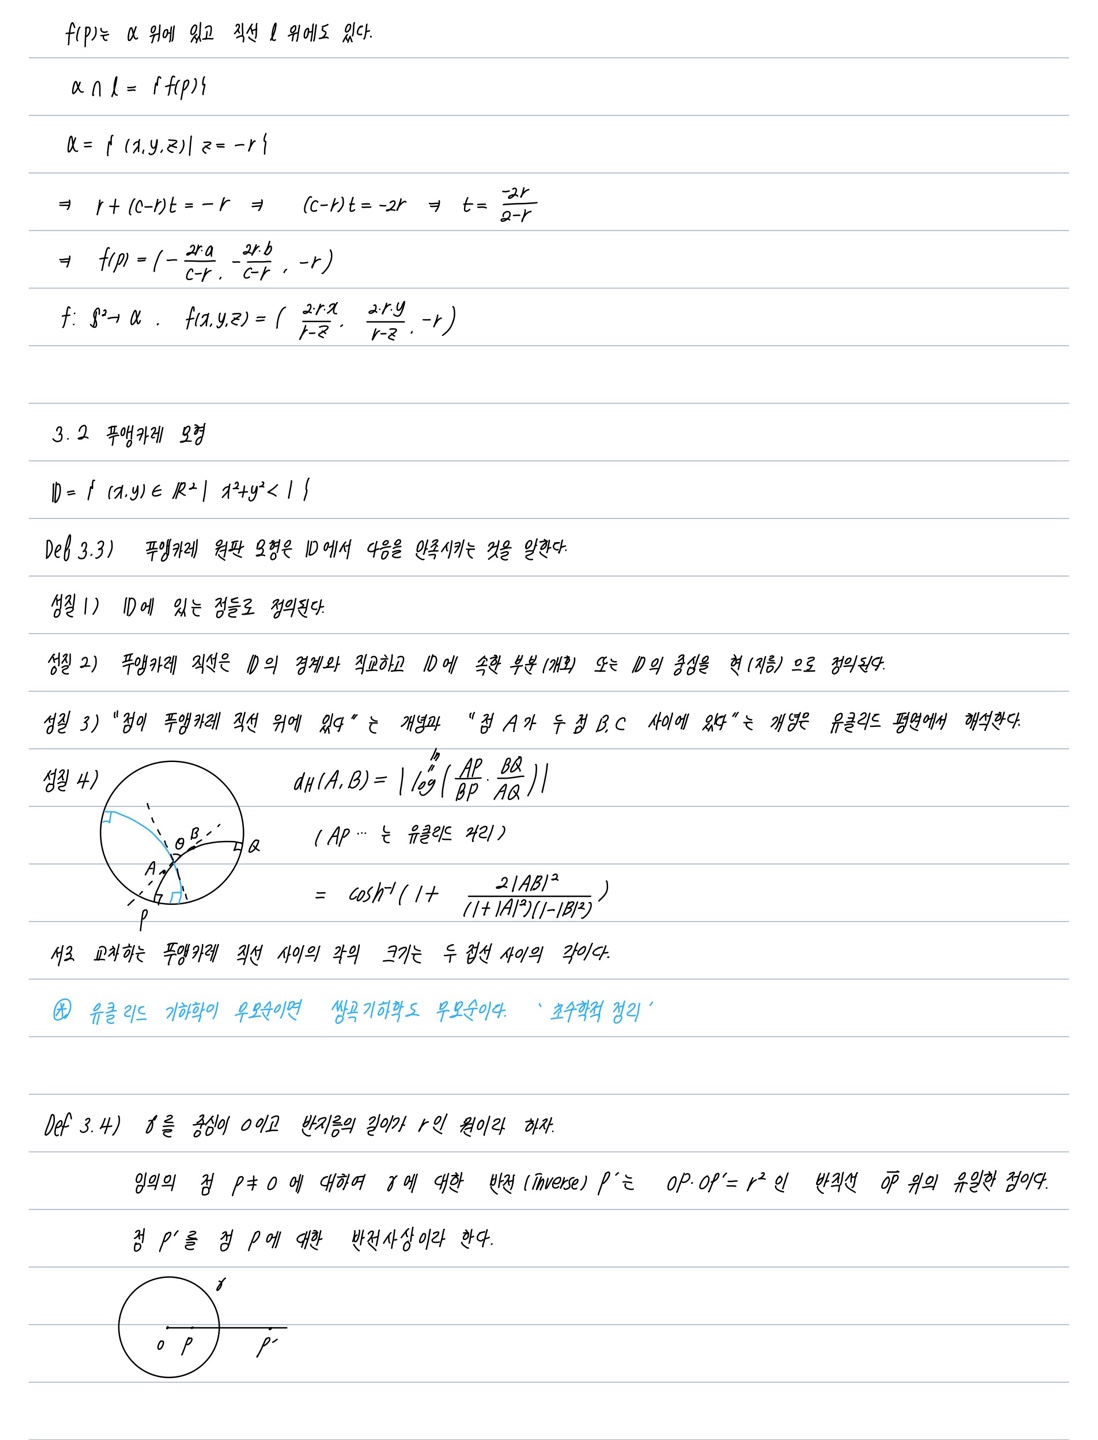 f(p)는 α 위에 있고 직선 l 위에도 있다.
α ∩ l = { f(p) }
α = { (x, y, z) | z = -r }
⇒ r + (c-r)t = -r ⇒ (c-r)t = -2r ⇒ t = -2r/(2-r)
⇒ f(p) = (- 2r·a/(c-r), - 2r·b/(c-r), -r)
f: S²→ α. f(x, y, z) = ( 2·r·x/(r-z), 2·r·y/(r-z), -r)
3.2 푸앵카레 모형
ID = { (x, y) ∈ IR² | x²+y² < 1 }
Def 3.3) 푸앵카레 원판 모형은 ID에서 다음을 만족시키는 것을 말한다.
성질 1) ID에 있는 점들로 정의된다.
성질 2) 푸앵카레 직선은 ID의 경계와 직교하고 ID에 속한 부분 (개호) 또는 ID의 중심을 현 (지름) 으로 정의된다.
성질 3) "점이 푸앵카레 직선 위에 있다"는 개념과 "점 A가 두 점 B, C 사이에 있다"는 개념은 유클리드 평면에서 해석한다.
성질 4)
θ B A Q P
ln
"
d_H(A, B) = | log( AP/BP · BQ/AQ ) |
(AP … 는 유클리드 거리)
= cosh⁻¹( 1 + 2|AB|²/((1+|A|²)(1-|B|²)) )
서로 교차하는 푸앵카레 직선 사이의 각의 크기는 두 접선 사이의 각이다.
㉨ 유클리드 기하학이 무모순이면 쌍곡기하학도 무모순이다. '초수학적 정리'
Def 3.4) γ를 중심이 O이고 반지름의 길이가 r인 원이라 하자.
임의의 점 P≠O 에 대하여 γ에 대한 반전 (inverse) P′는 OP·OP′= r² 인 반직선 OP 위의 유일한 점이다.
점 P′를 점 P에 대한 반전사상이라 한다.
γ
O P P′